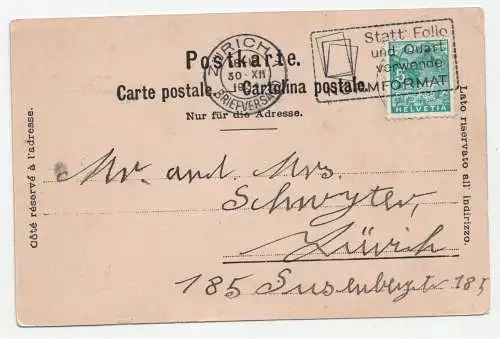 Postkarte.
Carte postale. Cartolina postale.
Nur für die Adresse.
ZÜRICH
30·XII
BRIEFVERSAND
Statt Folio
und Quart
verwende
FORMAT
HELVETIA
Côté réservé à l'adresse.
Lato riservato all' indirizzo.
Mr. and Mrs.
Schwyter,
Zürich
185 Susenbergstr 185